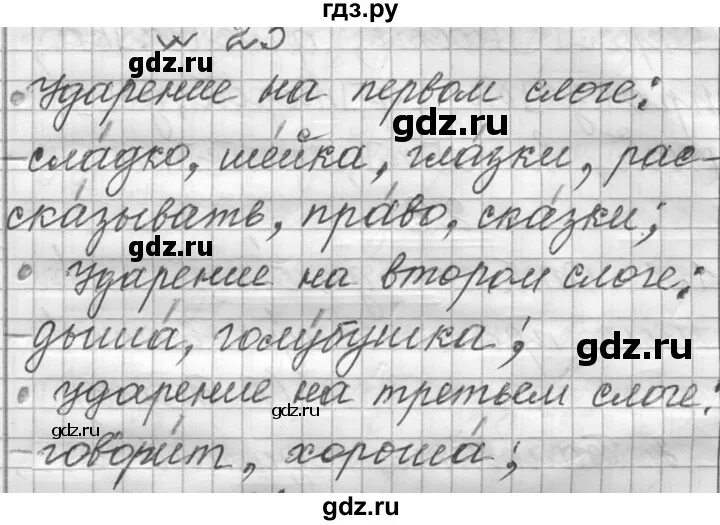 гдз.ру
№ 23
• Ударение на первом слоге:
gdz.ru
-сла́дко, ше́йка, гла́зки, рас-
ска́зывать, пра́во, ска́зки;
gdz.ru
• Ударение на втором слоге:
-дыша́, голу́бушка;
gdz.ru
• ударение на третьем слоге:
gdz.ru
gdz.ru
-говори́т, хороша́;
gdz.ru